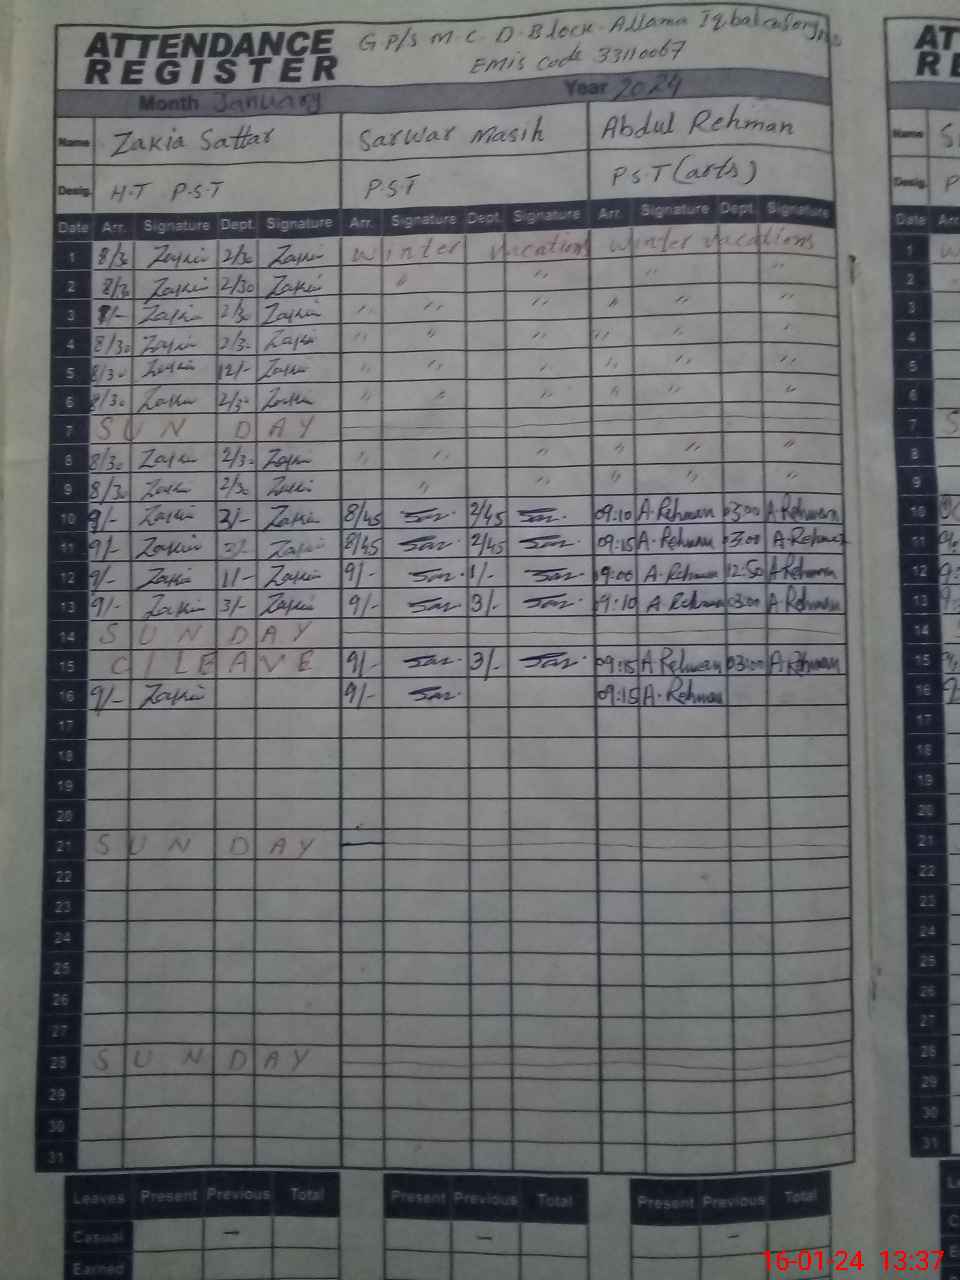 ATTENDANCE REGISTER
G P/S M.C. D-Block Allama Iqbal
EMIS Code 33110067
Month January Year 2024
Name Zakia Sattar Sarwar Masih Abdul Rehman
Desig. H-T P.S.T P.S.T P.S.T (arts)
Date Arr. Signature Dept. Signature Arr. Signature Dept. Signature Arr. Signature Dept. Signature
1 8/30 Zakia 2/30 Zakia Winter vacations Winter vacations
2 8/30 Zakia 2/30 Zakia 〃 〃 〃 〃
3 8/- Zakia 2/30 Zakia 〃 〃 〃 〃 〃 〃
4 8/30 Zakia 2/30 Zakia 〃 〃 〃 〃 〃 〃
5 8/30 Zakia 12/- Zakia 〃 〃 〃 〃 〃 〃
6 8/30 Zakia 2/30 Zakia 〃 〃 〃 〃 〃 〃
7 SUNDAY
8 8/30 Zakia 2/30 Zakia 〃 〃 〃 〃 〃 〃
9 8/30 Zakia 2/30 Zakia 〃 〃 〃 〃 〃
10 9/- Zakia 3/- Zakia 8/45 Sar. 2/45 Sar. 09:10 A.Rehman 03:00 A.Rehman
11 9/- Zakia 3/- Zakia 8/45 Sar. 2/45 Sar. 09:15 A.Rehman 03:00 A.Rehman
12 9/- Zakia 1/- Zakia 9/- Sar. 1/- Sar. 09:00 A.Rehman 12:50 A.Rehman
13 9/- Zakia 3/- Zakia 9/- Sar. 3/- Sar. 09:10 A.Rehman 03:00 A.Rehman
14 SUNDAY
15 C LEAVE 9/- Sar. 3/- Sar. 09:15 A.Rehman 03:00 A.Rehman
16 9/- Zakia 9/- Sar. 09:15 A.Rehman
17
18
19
20
21 SUNDAY
22
23
24
25
26
27
28 SUNDAY
29
30
31
Leaves Present Previous Total Present Previous Total Present Previous Total
Casual – – –
Earned
16-01-24 13:37